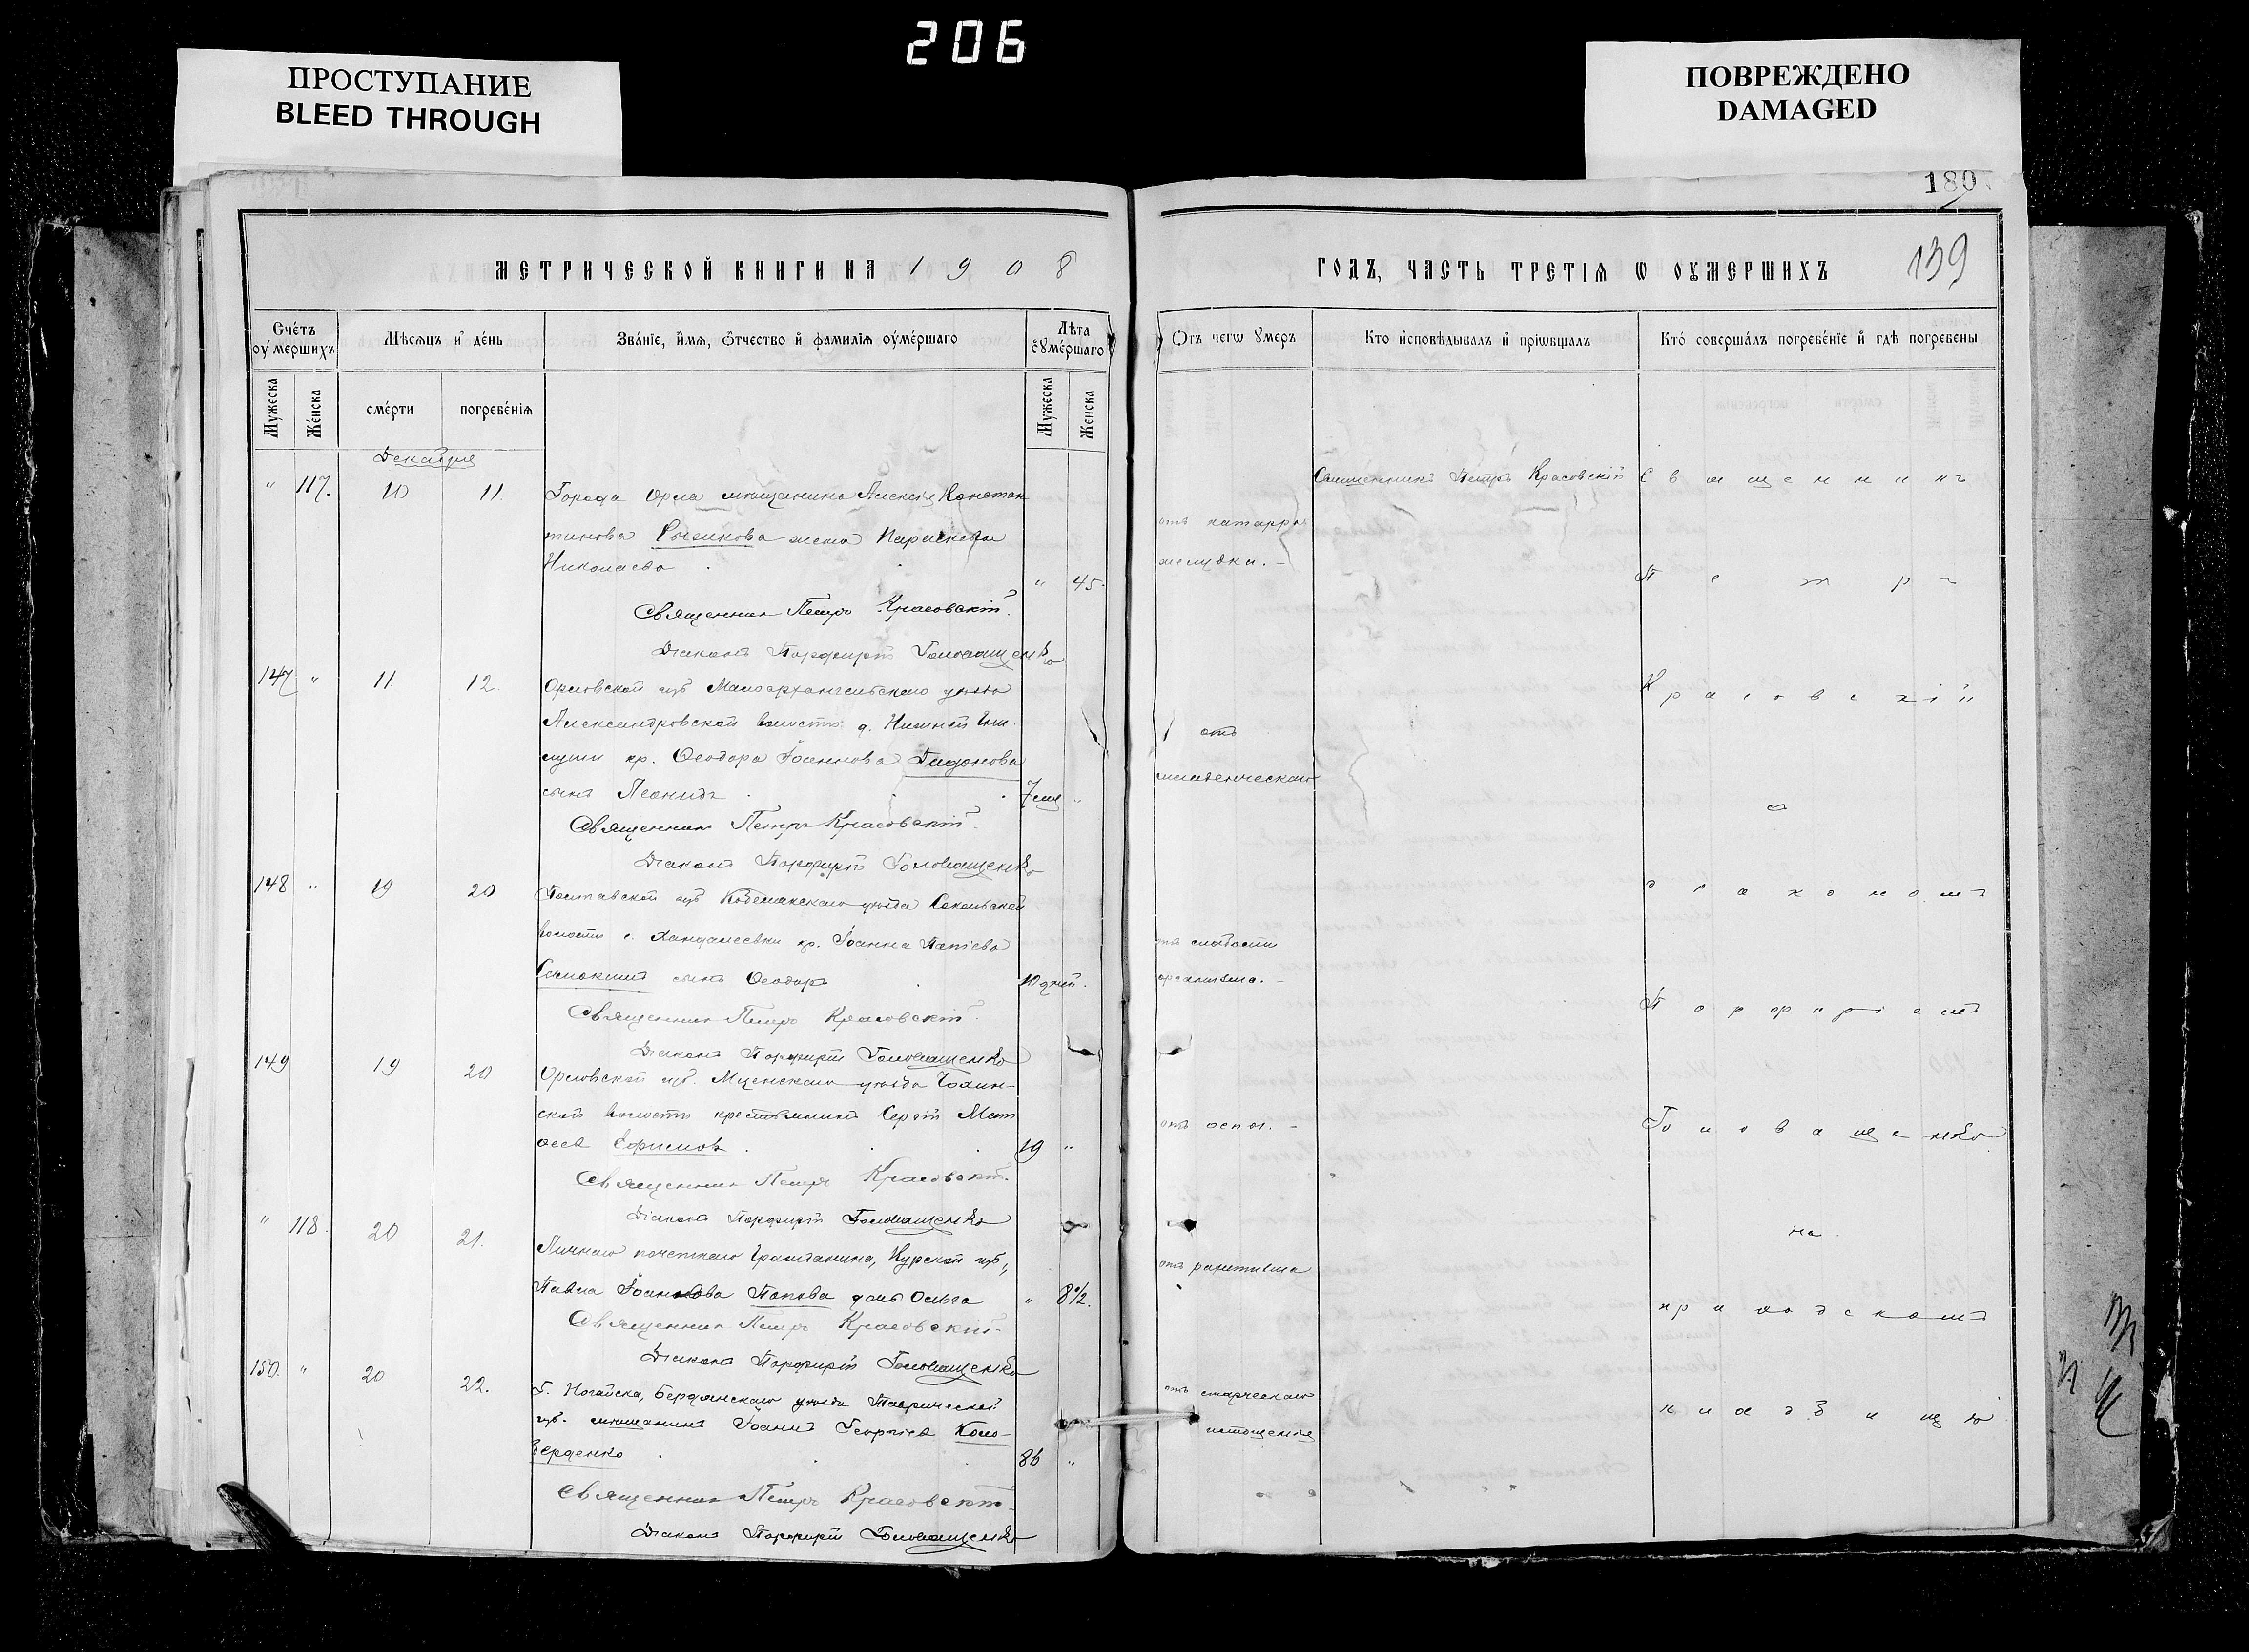 206
ПРОСТУПАНИЕ
BLEED THROUGH
ПОВРЕЖДЕНО
DAMAGED
180
139
МЕТРИЧЕСКОЙ КНИГИ НА 1908
ГОДЪ, ЧАСТЬ ТРЕТІѦ Ѡ ОУМЕРШИХЪ
Счетъ оумершихъ
Мѣсѧцъ и день
Званіе, имѧ, ѿчество и фамиліѧ оумершаго
Лѣта оумершаго
Отъ чегѡ умеръ
Кто исповѣдывалъ и пріѡбщалъ
Кто совершалъ погребеніе и гдѣ погребены
Мужеска
Женска
смерти
погребеніѧ
Мужеска
Женска
Декабря
" 117. 10 11.
Города Орла мѣщанина Алексѣя Констан
тинова жена Параскева
Николаева " 45.
отъ катарра
желудка. –
Священникъ Петръ Красовскій
Священникъ Петръ Красовскій.
Діаконъ Порфирій Головащенко
147 " 11 12.
Орловской губ Малоархангельскаго уѣзда
Александровской волости д. Нижней
кр. Ѳеодора Іоаннова
сынъ Леонидъ 7 "
отъ
младенческаго
Священникъ Петръ Красовскій
Діаконъ Порфирій Головащенко
148 " 19 20
Полтавской губ Кобелякскаго уѣзда Сокольской
волости с. кр. Іоанна
сынъ Ѳеодоръ 10 дней.
отъ слабости
организма. –
Священникъ Петръ Красовскій.
Діаконъ Порфирій Головащенко
149 19 20
Орловской губ. Мценскаго уѣзда
ской волости крестьянинъ Сергій Мат
ѳеевъ Ефимовъ 19 "
отъ оспы. –
Священникъ Петръ Красовскій.
Діаконъ Порфирій Головащенко
" 118. 20 21.
Личнаго почетнаго гражданина, Курской губ.,
Павла Іоаннова Попова дочь Ольга " 8½.
отъ рахитизма
Священникъ Петръ Красовскій.
Діаконъ Порфирій Головащенко
150. " 20 22.
Г. Ногайска, Бердянскаго уѣзда Таврической
губ. мѣщанинъ Іоаннъ Георгіевъ Коло-
берденко 86 "
отъ старческаго
истощенія
Священникъ Петръ Красовскій.
Діаконъ Порфирій Головащенко
Священникъ
Петръ
Красовскій
съ
діакономъ
Порфиріемъ
Головащенко
на
приходскомъ
кладбищѣ